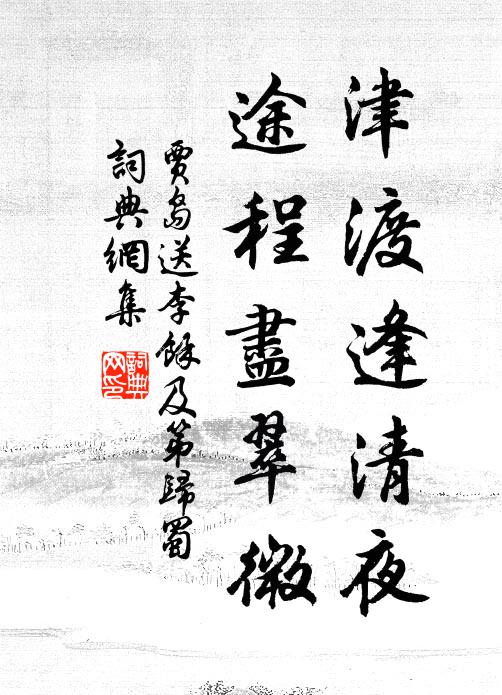 津渡逢清夜
途程盡翠微
賈島送李餘及第歸蜀
詞典網集
詞典
网印